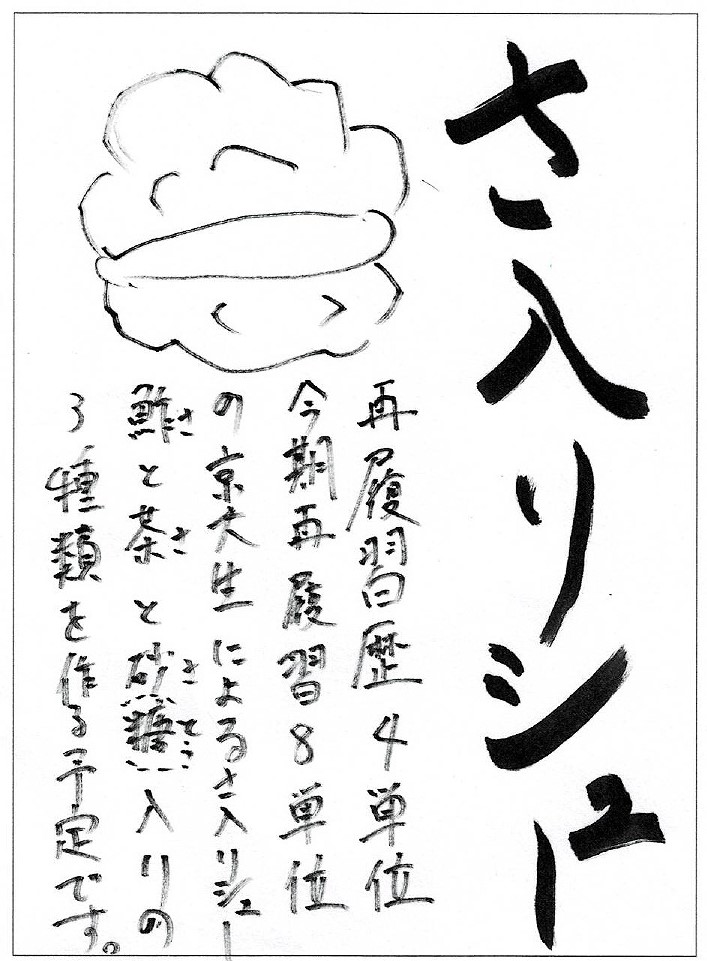 さ入りシュー
再履習歴4単位
今期再履習8単位
の京大生によるさ入りシュー
鮓と茶と砂糖入りの
さ さ さとう
3種類を作る予定です。